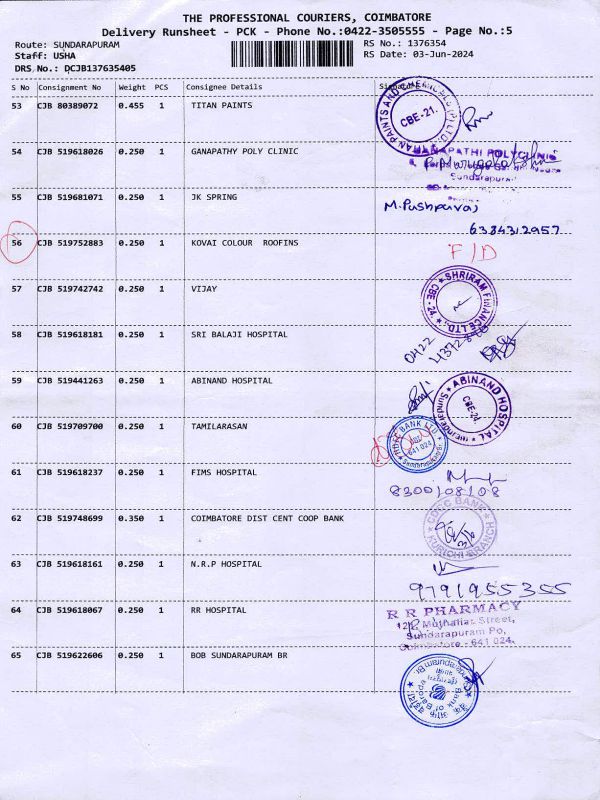 THE PROFESSIONAL COURIERS, COIMBATORE
Delivery Runsheet - PCK - Phone No.:0422-3505555 - Page No.:5
Route: SUNDARAPURAM RS No.: 1376354
Staff: USHA RS Date: 03-Jun-2024
DRS No.: DCJB137635405
S No Consignment No Weight PCS Consignee Details
53 CJB 80389072 0.455 1 TITAN PAINTS
CBE-21.
54 CJB 519618026 0.250 1 GANAPATHY POLY CLINIC
Sundarapuram
55 CJB 519681071 0.250 1 JK SPRING
M.Pushparaj
6384312957
56 CJB 519752883 0.250 1 KOVAI COLOUR ROOFINS
F/D
57 CJB 519742742 0.250 1 VIJAY
SHRIRAM FINANCE LTD.
CBE - 24.
58 CJB 519618181 0.250 1 SRI BALAJI HOSPITAL
0422
59 CJB 519441263 0.250 1 ABINAND HOSPITAL
ABINAND HOSPITAL
CBE-24.
60 CJB 519709700 0.250 1 TAMILARASAN
BANK LTD
641 024
61 CJB 519618237 0.250 1 FIMS HOSPITAL
8300108108
62 CJB 519748699 0.350 1 COIMBATORE DIST CENT COOP BANK
BANK
KURICHI BRANCH
63 CJB 519618161 0.250 1 N.R.P HOSPITAL
9791955355
64 CJB 519618067 0.250 1 RR HOSPITAL
R R PHARMACY
Street,
Sundarapuram Po,
Coimbatore - 641 024.
65 CJB 519622606 0.250 1 BOB SUNDARAPURAM BR
Bank of Baroda